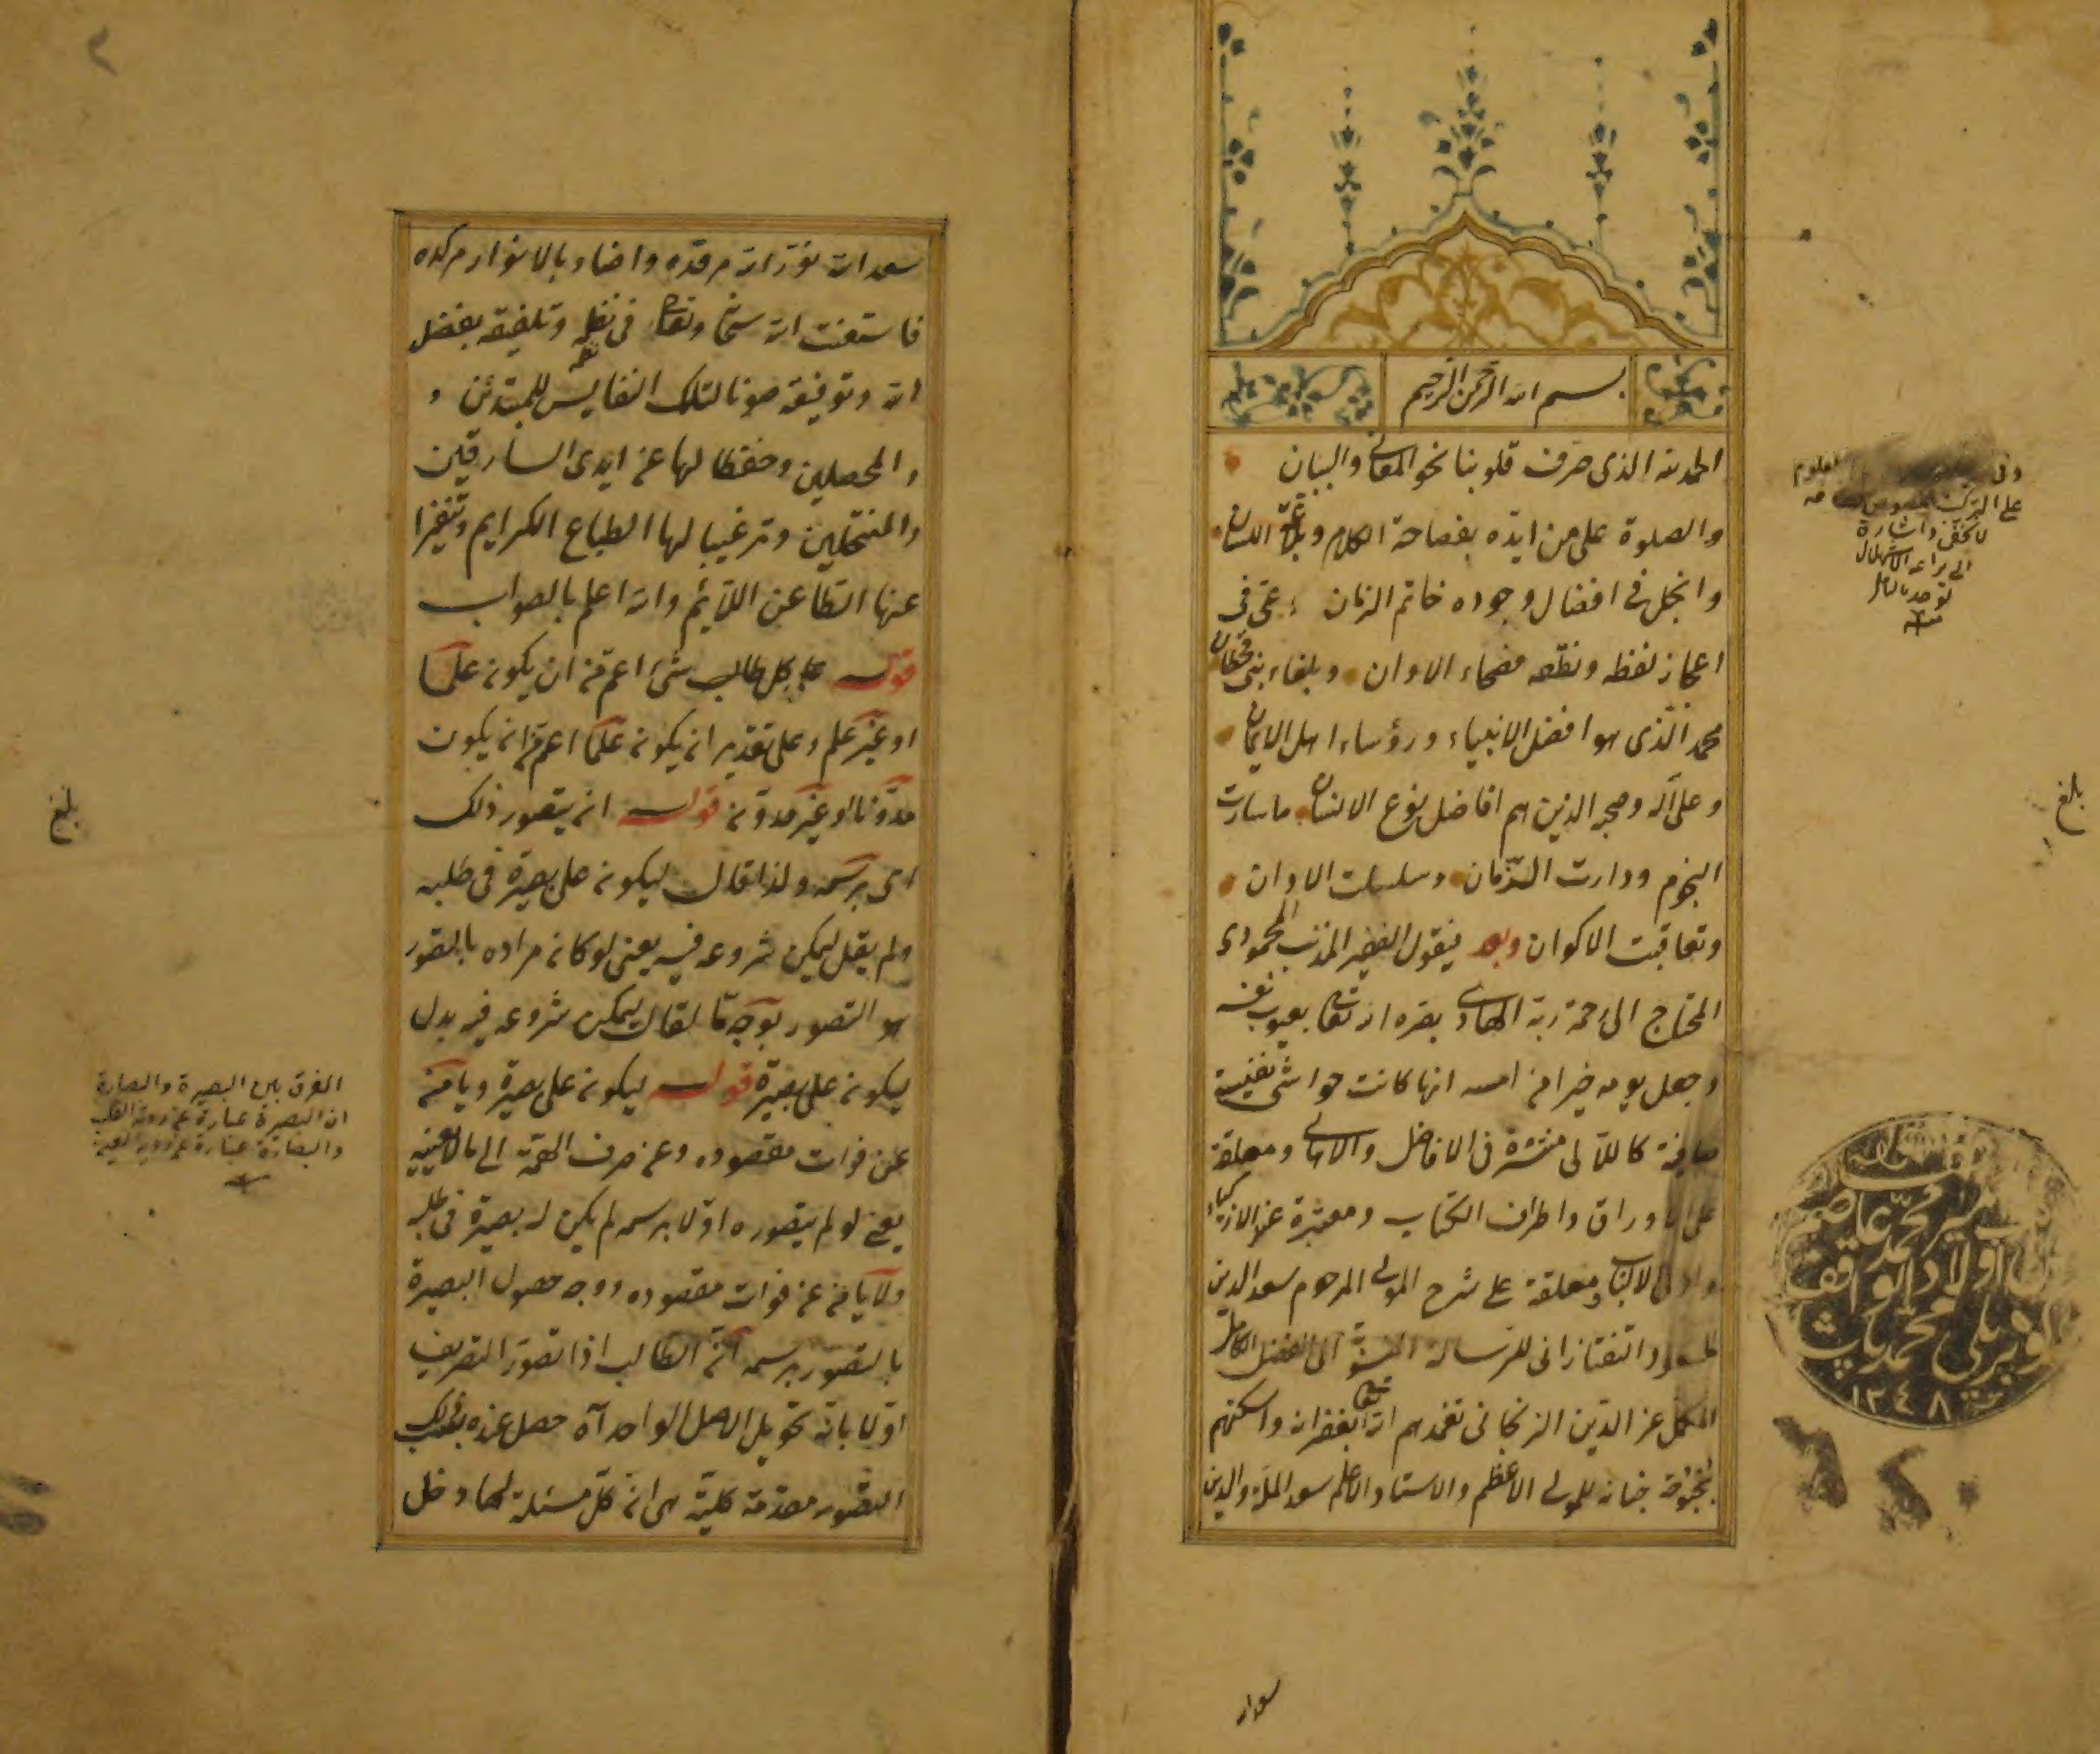 بسم الله الرحمن الرحيم
الحمد لله الذى صرف قلوبنا نحو المعانى والبيان
والصلوة على من ايده بفصاحة الكلام وبلاغة اللسان
وانجلى فى افضال وجوده خاتم الزمان عمّى فى
اعجاز لفظه ونطقه فصحاء الاوان وبلغاء بنى قحطان
محمد الّذى هو افضل الانبياء ورؤساء اهل الايمان
وعلى آله وصحبه الذين هم افاضل نوع الانسان ما سارت
النجوم ودارت الزمان وسلسلت الاوان
وتعاقبت الاكوان وبعد فيقول الفقير المذنب المحمودى
المحتاج الى رحمة ربه الهادى بصره الله تعالى بعيوب نفسه
وجعل يومه خيرا من امسه انها كانت حواشى نفيسة
صافية كاللآلى منتشرة فى الافاضل والاهالى ومعلقة
على الاوراق واطراف الكتاب ومعتبرة عند الازكياء
واولى الالباب ومعلقة على شرح المولى المرحوم سعد الدين
التفتازانى للرسالة الى الفضل الكامل
المكمل عز الدّين الزنجانى تغمدهم الله تعالى بغفرانه واسكنهم
بحبوحة جنانه للمولى الاعظم والاستاد الاعلم سعد الملة والدين
سعد الله
على التركيب
واشارة
الى براعة الاستهلال
بلغ
١٢٤٨
سعد الله نوّر الله مرقده واضاء بالانوار مركده
فاستعنت الله سبحانه وتعالى فى نقله وتلفيقه بفضل
الله وتوفيقه صونا لتلك النفايس للمبتدئن و
والمحصلين وحفظا لها عن ايدى السارقين
والمنتحلين وترغيبا لها الطباع الكرايم وتنفيرا
عنها الطّاعن اللائم والله اعلم بالصواب
قوله على كل طالب شئ اعم من ان يكون علما
او غير علم وعلى تقدير ان يكون علما اعم من ان يكون
مدوّنا او غير مدوّن قوله ان يتصور ذلك
اى برسمه ولذا قال ليكون على بصيرة فى طلبه
ولم يقل ليمكن شروعه فيه يعنى لو كان مراده بالتصور
هو التصور بوجه ما لقال ليمكن شروعه فيه بدل
ليكون على بصيرة قوله ليكون على بصيرة ويأمن
عن فوات مقصوده وعن صرف الهمّة الى ما لا يعنيه
يعنى لو لم يتصوره اوّلا برسمه لم يكن له بصيرة فى طلبه
ولا يأمن عن فوات مقصوده ووجه حصول البصيرة
بالتصور برسمه انّ الطالب اذا تصوّر التصريف
اوّلا بانّه تحويل الاصل الواحد آه حصل عنده بذلك
التصور مقدمة كلية هى ان كلّ مسئلة لها دخل
بلغ
الفرق بين البصيرة والبصارة
ان البصيرة عبارة عن روية القلب
والبصارة عبارة عن روية العين
٢